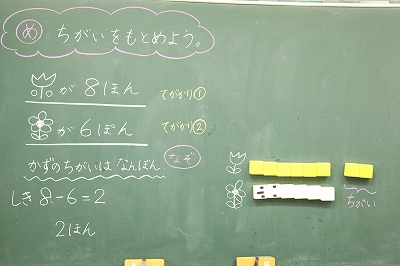 め ちがいをもとめよう。
が 8ほん てがかり①
が 6ぽん てがかり②
かずのちがいは なんぼん。 なぞ
しき 8-6=2
2ほん
ちがい